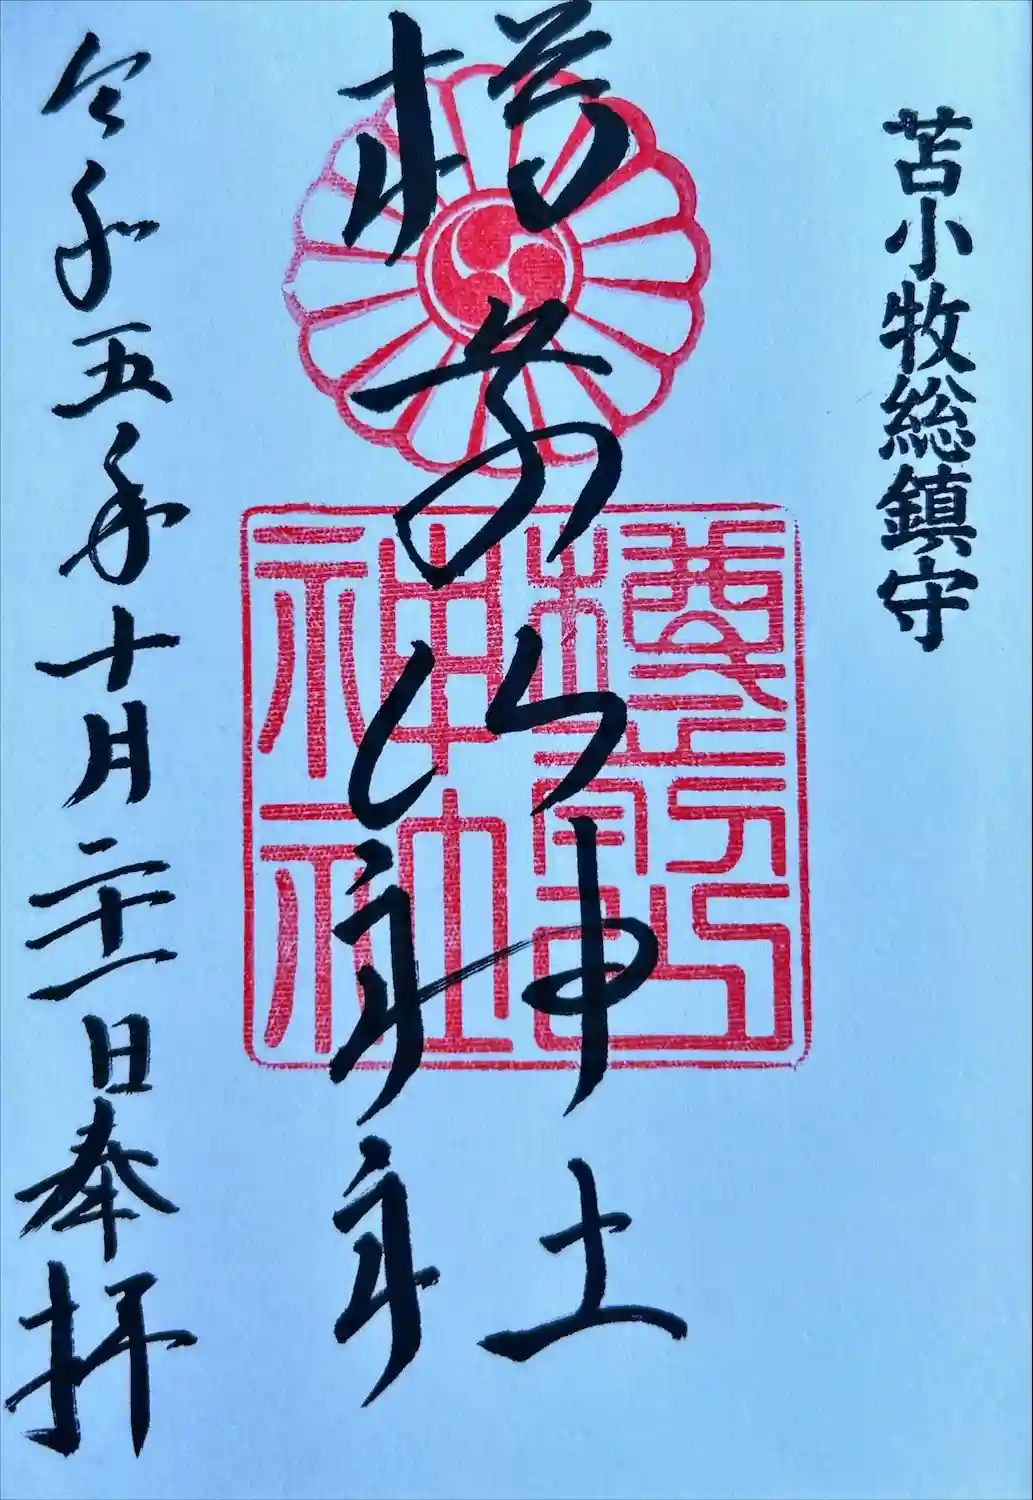 苫小牧総鎮守
樽前山神社
令和五年十月二十一日奉拝
樽前山
神社